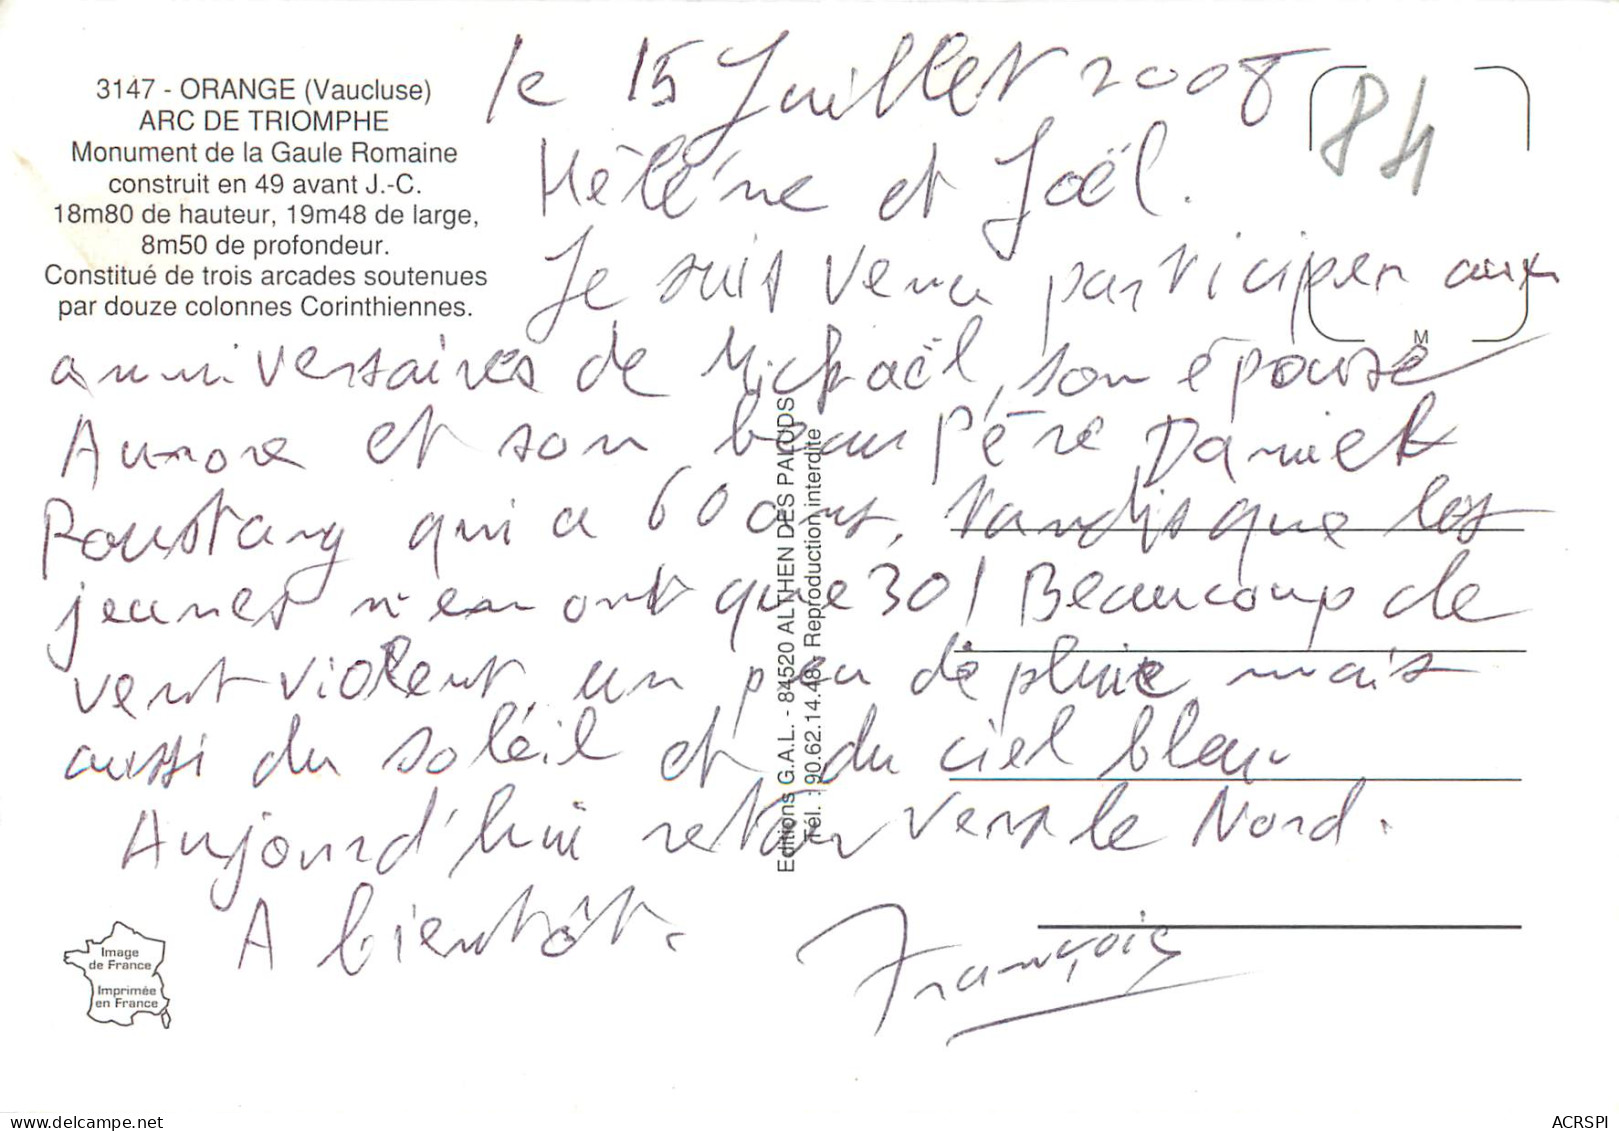 3147 - ORANGE (Vaucluse)
ARC DE TRIOMPHE
Monument de la Gaule Romaine
construit en 49 avant J.-C.
18m80 de hauteur, 19m48 de large,
8m50 de profondeur.
Constitué de trois arcades soutenues
par douze colonnes Corinthiennes.
le 15 Juillet 2008
84
Hélène et Joël.
Je suis venu participer aux
anniversaires de Mickaël, son épouse
Aurore et son beau père Daniel
Roustang qui a 60 ans, tandis que les
jeunes n'en ont que 30! Beaucoup de
vent violent, un peu de pluie mais
aussi du soleil et du ciel bleu
Aujourd'hui retour vers le Nord.
A bientôt.
François
M
Editions G.A.L. - 84520 ALTHEN DES PALUDS
Tél. : 90.62.14.48 Reproduction interdite
Image
de France
Imprimée
en France
delcampe.net
ACRSPI